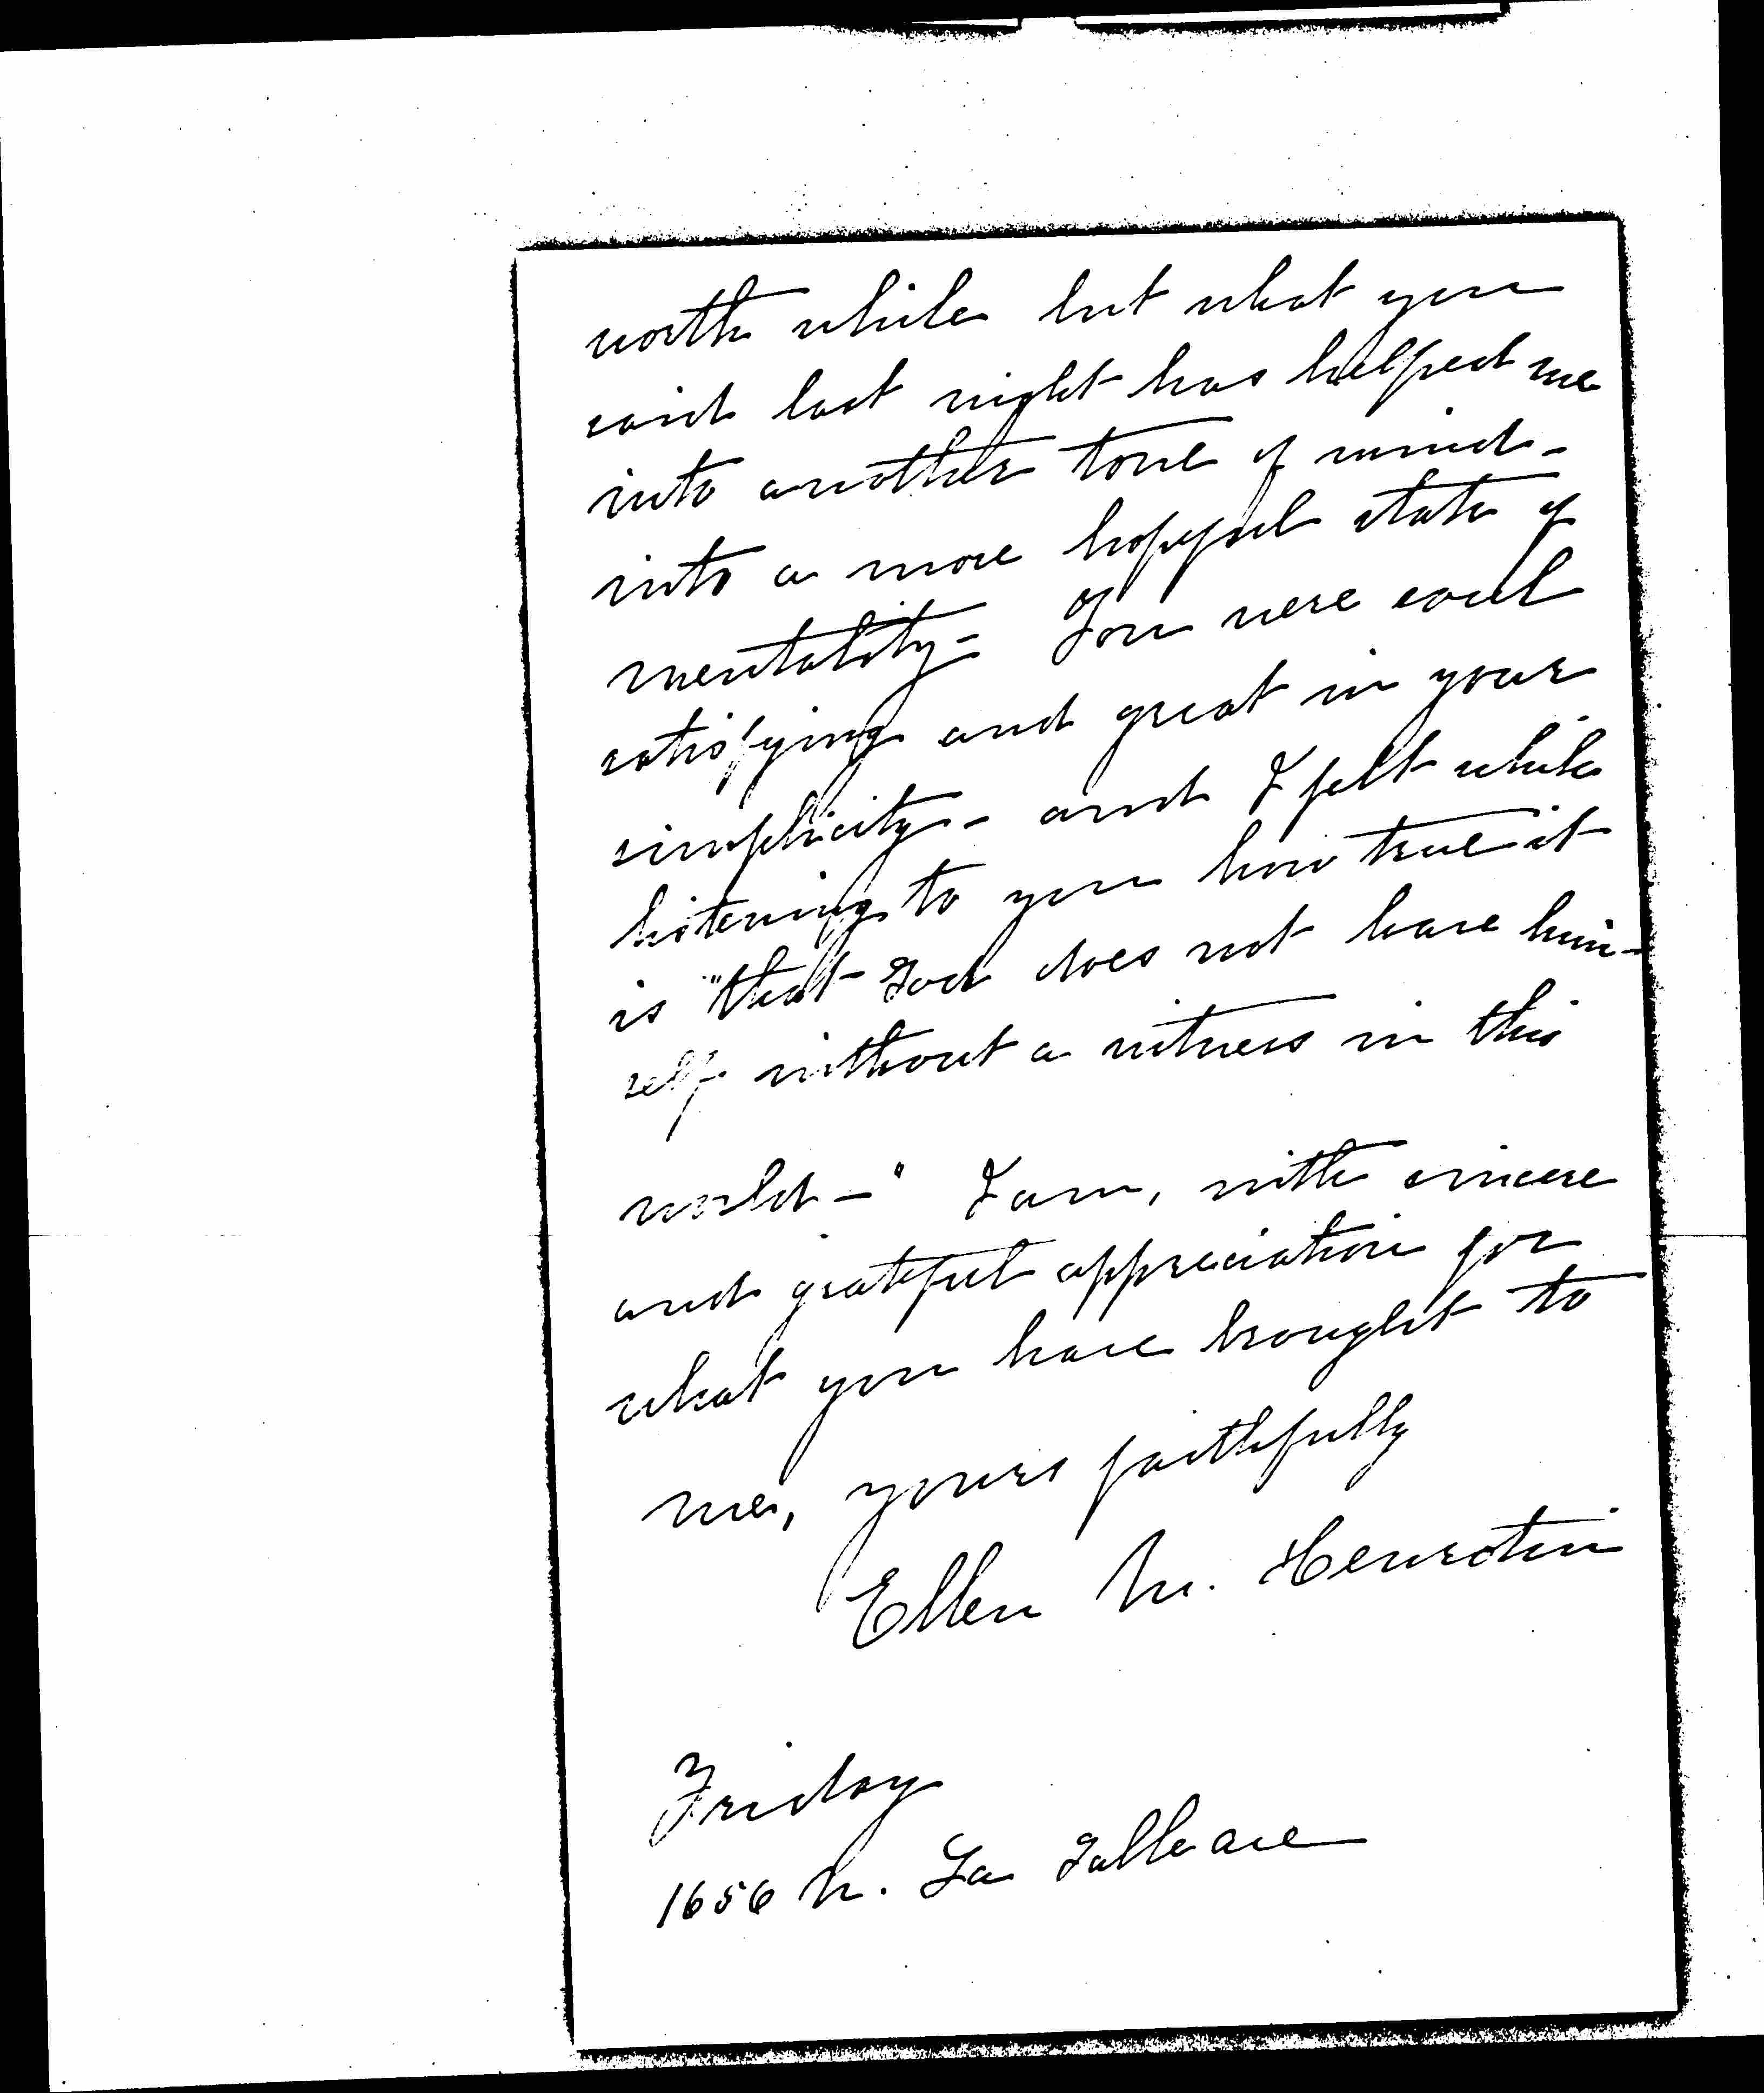 worth while but what you
said last night has helped me
into another tone of mind -
into a more hopeful state of
mentality - You were soul
satisfying and great in your
simplicity - and I felt while
listening to you how true it
is "that God does not leave him-
self without a witness in this
world - " I am, with sincere
and grateful appreciation for
what you have brought to
me, yours faithfully
Ellen M. Henrotin
Friday
1656 N. La Salle ave